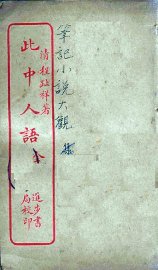 筆記小說大觀
清程趾祥著
此中人語
進步書
局校印